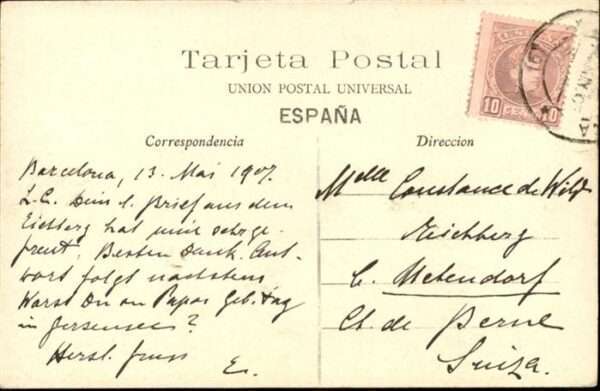 Tarjeta Postal
UNION POSTAL UNIVERSAL
ESPAÑA
Correspondencia
Direccion
10 CENT 10
Barcelona, 13. Mai 1907.
L.C. Dein l. Brief aus dem
Eichberg hat mich sehr ge-
freut. Besten Dank. Ant-
wort folgt nächstens.
Warst Du an Papas Geb. tag
in Gerzensee?
Herzl. Gruss
E.
Melle Constance de Wild
Eichberg
b. Uetendorf
Ct. de Berne
Suiza.